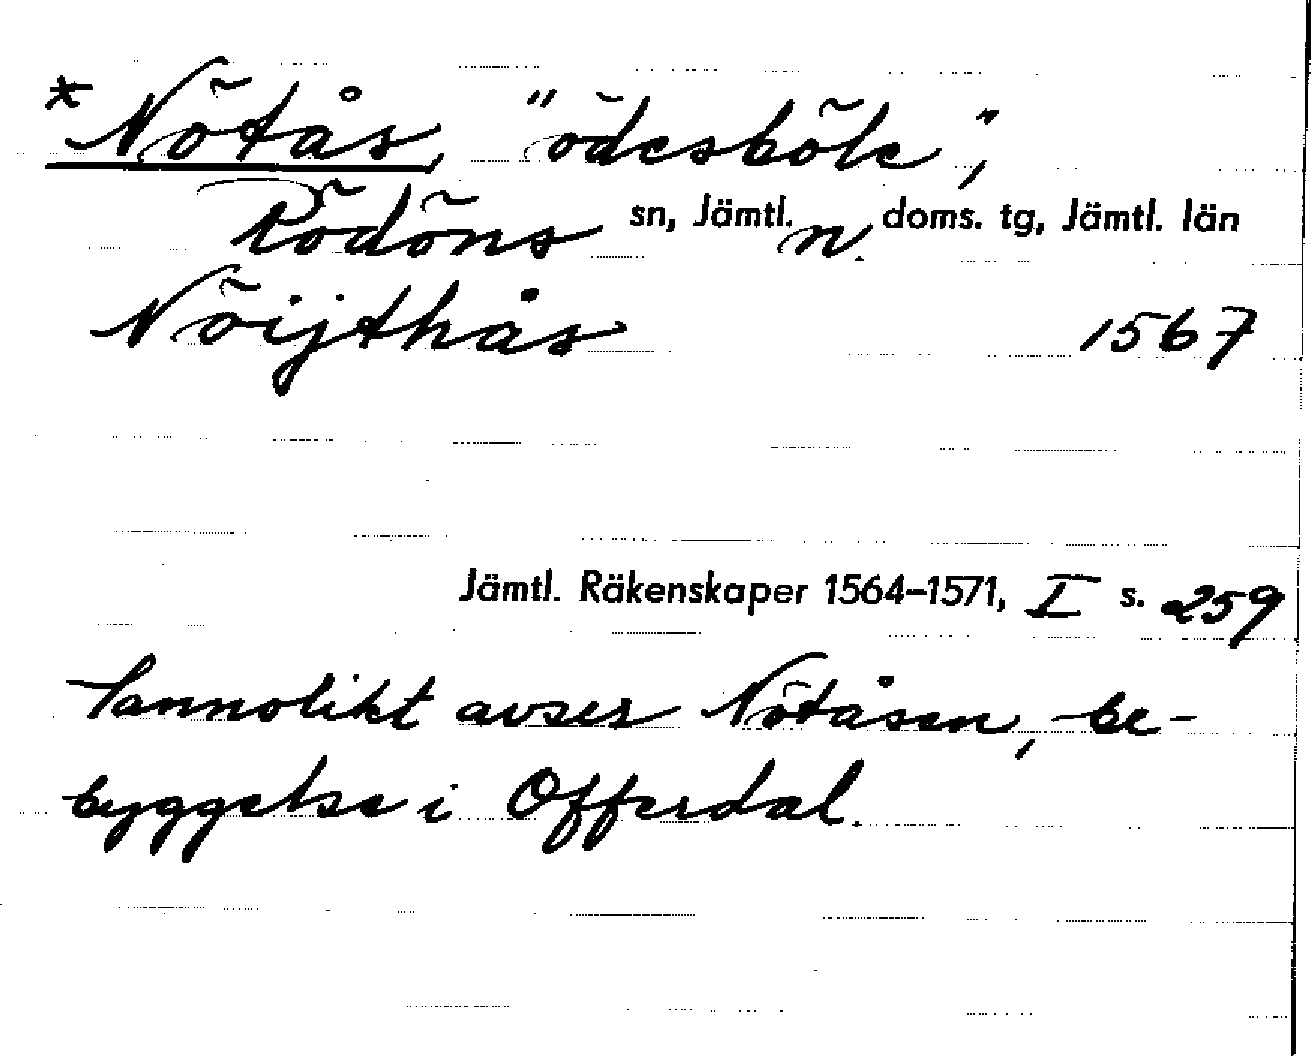 *Nötås, "ödesböle",
Rödöns sn, Jämtl. n. doms. tg, Jämtl. län
Nöijthås 1567
Jämtl. Räkenskaper 1564–1571, I s. 259
Sannolikt avser Nötåsen, be-
byggelse i Offerdal.